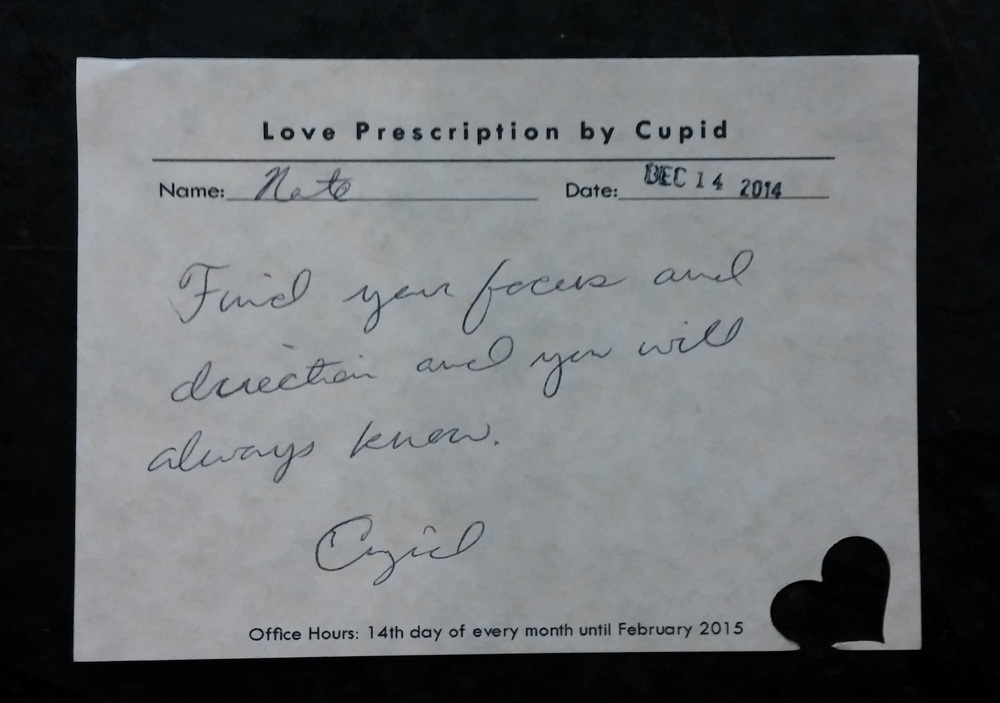 Love Prescription by Cupid
Name: Nate Date: DEC 14 2014
Find your focus and
direction and you will
always know.
Cupid
Office Hours: 14th day of every month until February 2015